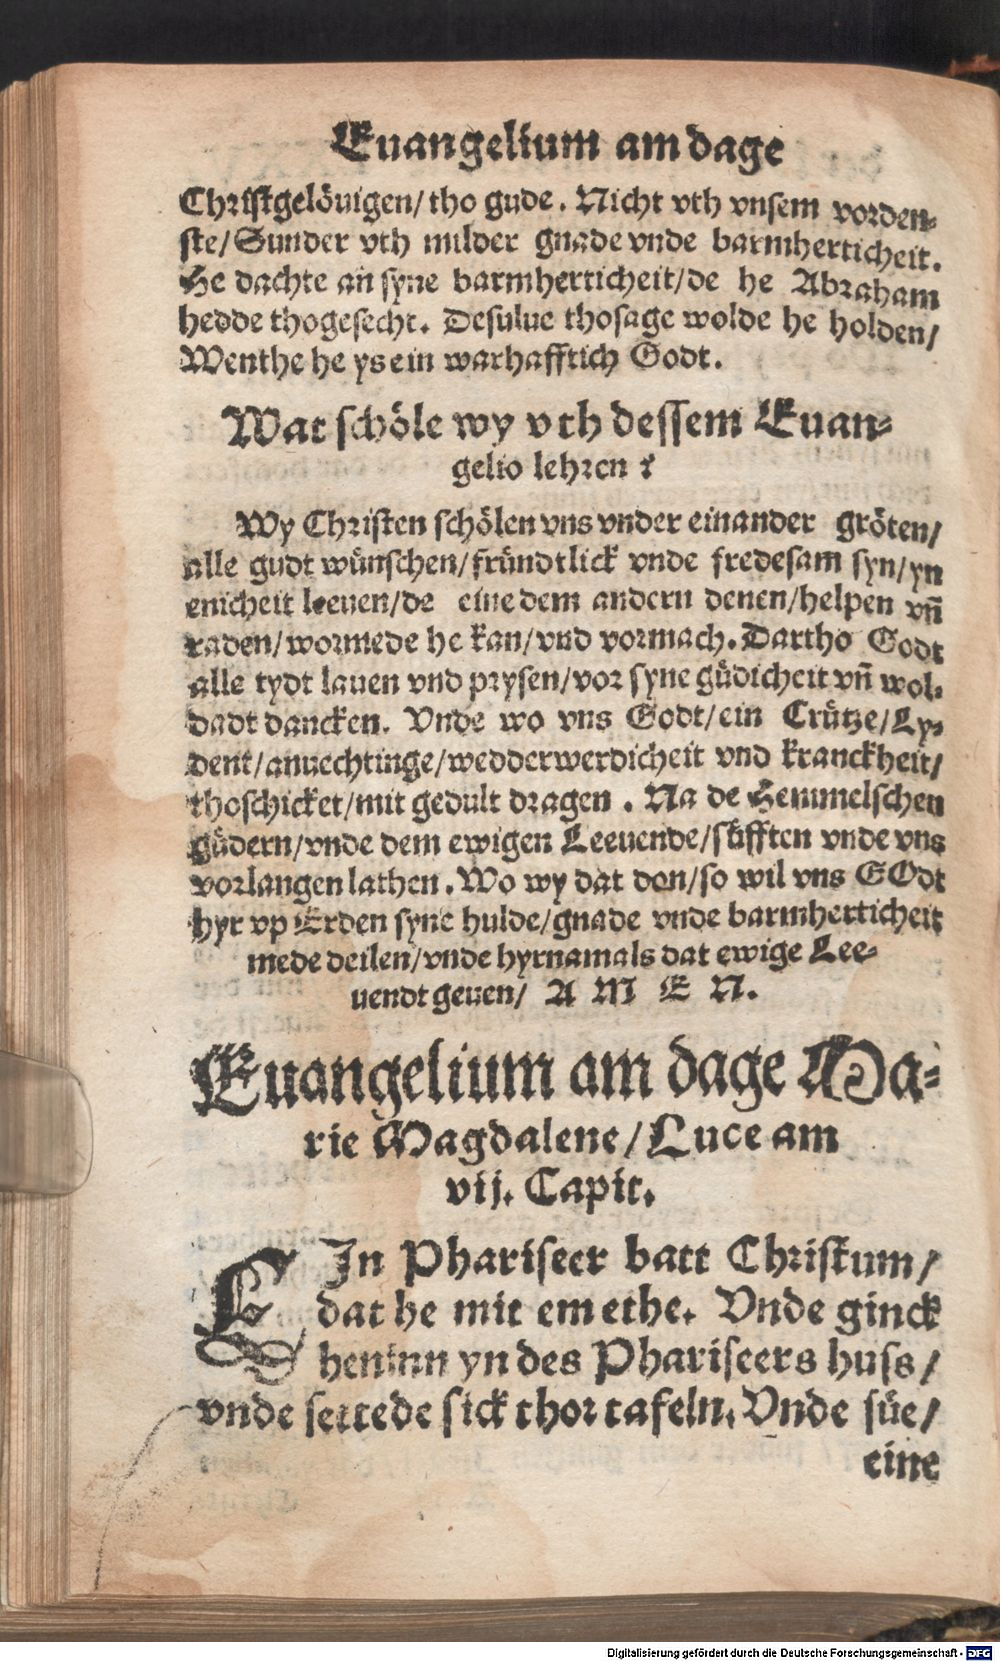 Euangelium am dage
Christgelöuigen/ tho gude. Nicht vth vnsem vorden-
ste/ Sunder vth milder gnade vnde barmherticheit.
He dachte an syne barmherticheit/ de he Abraham
hedde thogesecht. Desulue thosage wolde he holden/
Wenthe he ys ein warhafftich Godt.
Wat schöle wy vth dessem Euan-
gelio lehren?
Wy Christen schölen vns vnder einander gröten/
alle gudt wünschen/ fründtlick vnde fredesam syn/ yn
enicheit leeuen/ de eine dem andern denen/ helpen vñ
raden/ wormede he kan/ vnd vormach. Dartho Godt
alle tydt lauen vnd prysen/ vor syne güdicheit vñ wol-
dadt dancken. Vnde wo vns Godt/ ein Crütze/ Ly-
dent/ anuechtinge/ wedderwerdicheit vnd kranckheit/
thoschicket/ mit gedult dragen. Na de Hemmelschen
güdern/ vnde dem ewigen Leeuende/ süfften vnde vns
vorlangen lathen. Wo wy dat don/ so wil vns GOdt
hyr vp Erden syne hulde/ gnade vnde barmherticheit
mede deilen/ vnde hyrnamals dat ewige Lee-
uendt geuen/ A M E N.
Euangelium am dage Ma-
rie Magdalene/ Luce am
vij. Capit.
EIn Phariseer batt Christum/
dat he mit em ethe. Vnde ginck
heninn yn des Phariseers huss/
vnde settede sick thor tafeln. Vnde süe/
eine
Digitalisierung gefördert durch die Deutsche Forschungsgemeinschaft - DFG